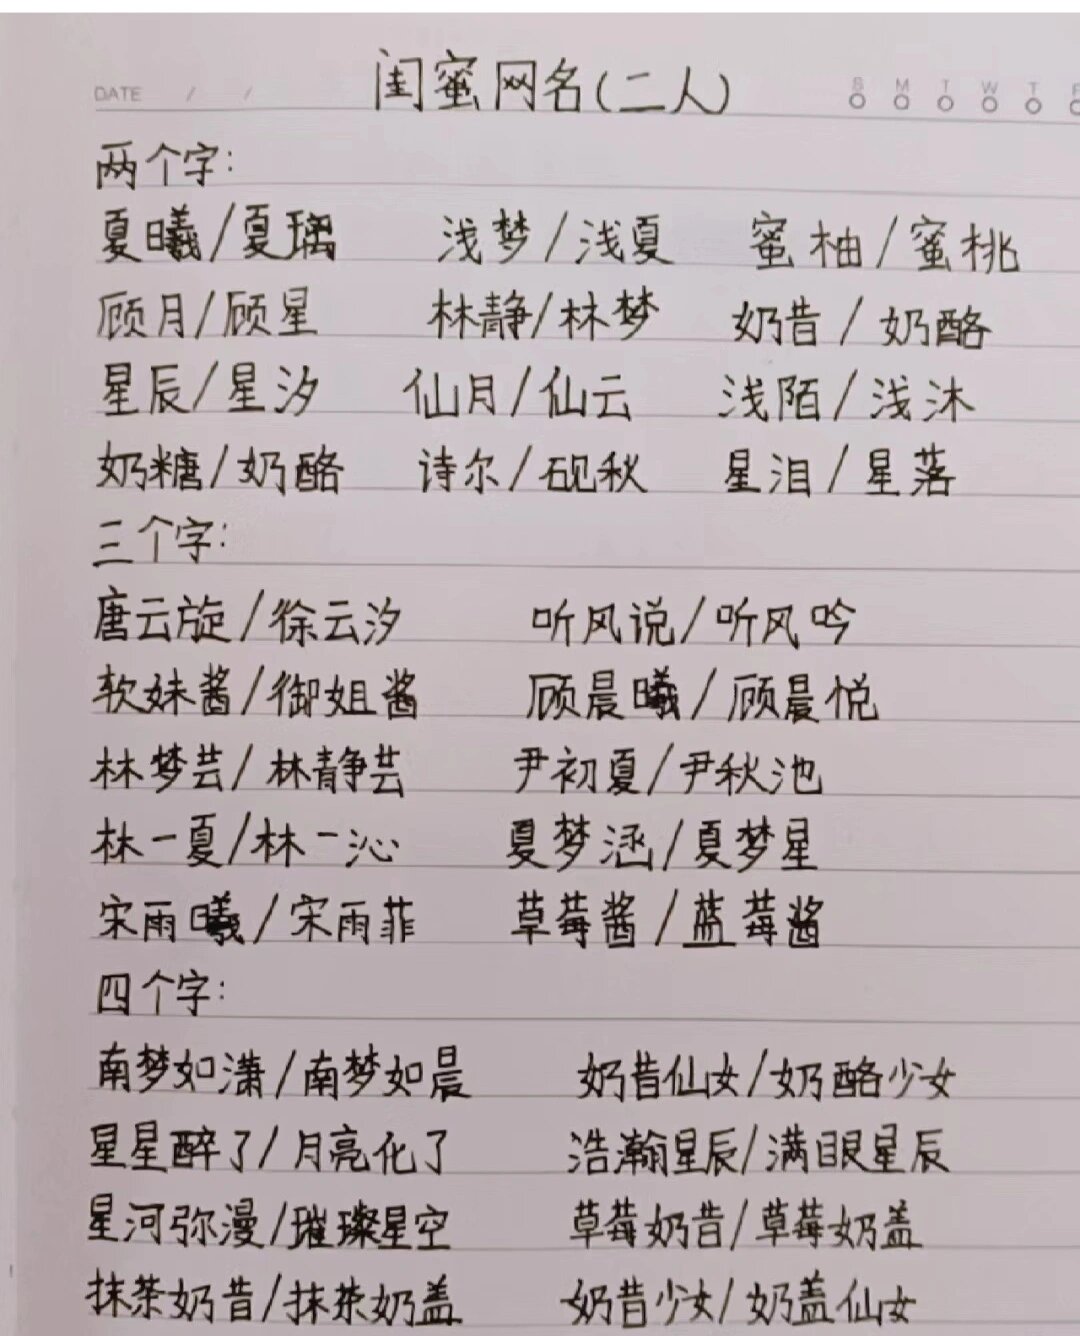 DATE / /
闺蜜网名(二人)
S M T W T F
两个字:
夏曦/夏璃 浅梦/浅夏 蜜柚/蜜桃
顾月/顾星 林静/林梦 奶昔/奶酪
星辰/星汐 仙月/仙云 浅陌/浅沐
奶糖/奶酪 诗尔/砚秋 星泪/星落
三个字:
唐云旋/徐云汐 听风说/听风吟
软妹酱/御姐酱 顾晨曦/顾晨悦
林梦芸/林静芸 尹初夏/尹秋池
林一夏/林一沁 夏梦涵/夏梦星
宋雨曦/宋雨菲 草莓酱/蓝莓酱
四个字:
南梦如潇/南梦如晨 奶昔仙女/奶酪少女
星星醉了/月亮化了 浩瀚星辰/满眼星辰
星河弥漫/璀璨星空 草莓奶昔/草莓奶盖
抹茶奶昔/抹茶奶盖 奶昔少女/奶盖仙女